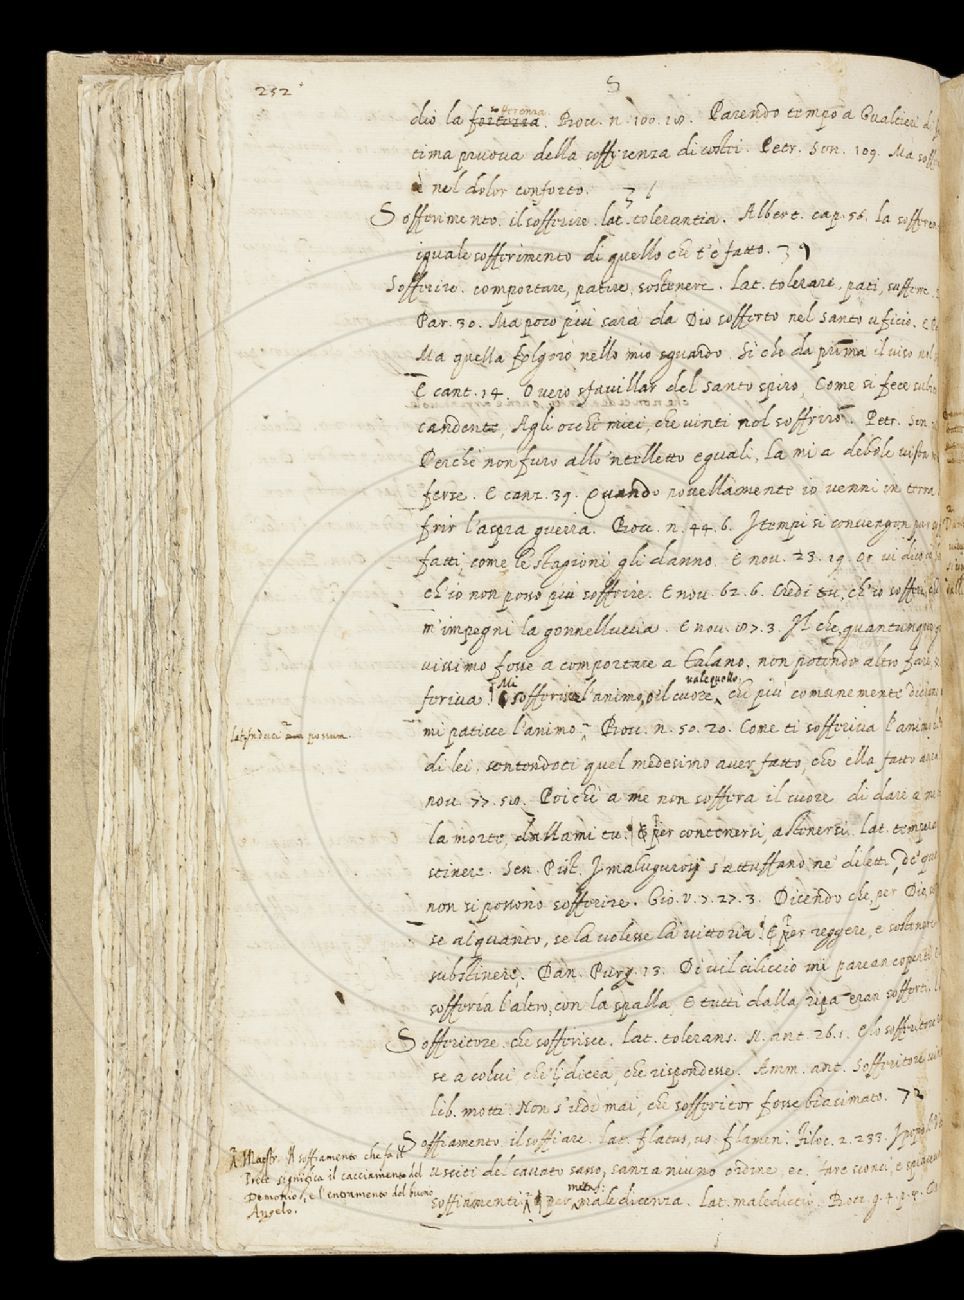 252
S
dio la sofferenza. Bocc. n. 100. 18. Parendo tempo a Gualtieri di
tima pruova della sofferenza di costei. Petr. Son. 109. Ma soff
è nel dolor conforto.
Sofferimento. il sofferire. lat. tolerantia. Albert. cap. 56. la sofferen
iguale sofferimento di quello che t'è fatto.
Sofferire. comportare, patire, sostenere. Lat. tolerare, pati, sufferre.
Par. 30. Ma poco più sarà da Dio sofferto nel santo uficio. E
Ma quella folgorò nello mio sguardo. Sì che da prima il viso nol
E cant. 14. O vero sfavillar del santo spiro, Come si fece subito
candente, Agli occhi miei, che vinti nol soffriro. Petr. Son
Perchè non furo allo 'ntelletto eguali. La mi a debole vista
ferse. E canz. 39. Quando novellamente io venni in terra
frir l'aspra guerra. Bocc. n. 44. 6. I tempi si convengon pur
fatti, come le stagioni gli danno. E nov. 23. 19. Or vi dico
ch'io non posso più soffrire. E nov. 62. 6. Credi tu, ch'io sofferi,
m'impegni la gonnelluccia. E nov. 87. 3. Il che, quantunque
vissimo fosse a comportare a Talano, non potendo altro fare,
feriva. Mi sofferisce l'animo, o il cuore, vale quello che più comunemente diciamo
Lat. induci possum
mi patisce l'animo. Bocc. n. 50. 20. Come ti sofferiva l'animo
di lei, sentendoti quel medesimo aver fatto, che ella fatto
nov. 77. 58. Poichè a me non soffera il cuore di dare a me
la morte, dallami tu. E per contenersi, astenersi. Lat. temper
stinere. Sen. Pist. I malugurosi s'attuffano ne' diletti, de' qua
non si possono sofferire. Gio. V. 7. 27. 3. Dicendo che, per Dio,
se alquanto, se la volesse la vittoria. E per reggere, e sostenere
substinere. Dan. Purg. 13. Di vil ciliccio mi parean coperti
sofferia l'altro, con la spalla, E tutti dalla ripa eran sofferti.
Sofferitore. che sofferisce. Lat. tolerans. N. ant. 26. 1. E lo sofferitore
se a colui che li dicea, che rispondesse. Amm. ant. Sofferitore
lib. motti. Non s'udì mai, che sofferitor fosse biasimato. 72
Soffiamento. il soffiare. Lat. flatus, us. flamen. Filoc. 2. 233.
usciti del cavato sasso, sanza niuno ordine, ec. fare
soffiamenti. E per metaf. maledicenza. Lat. maledictio. Bocc. g. 4. p. 7.
Maestr. Il soffiamento che fa il
Prete significa il cacciamento del
Demonio, e l'entramento del buono
Angelo.